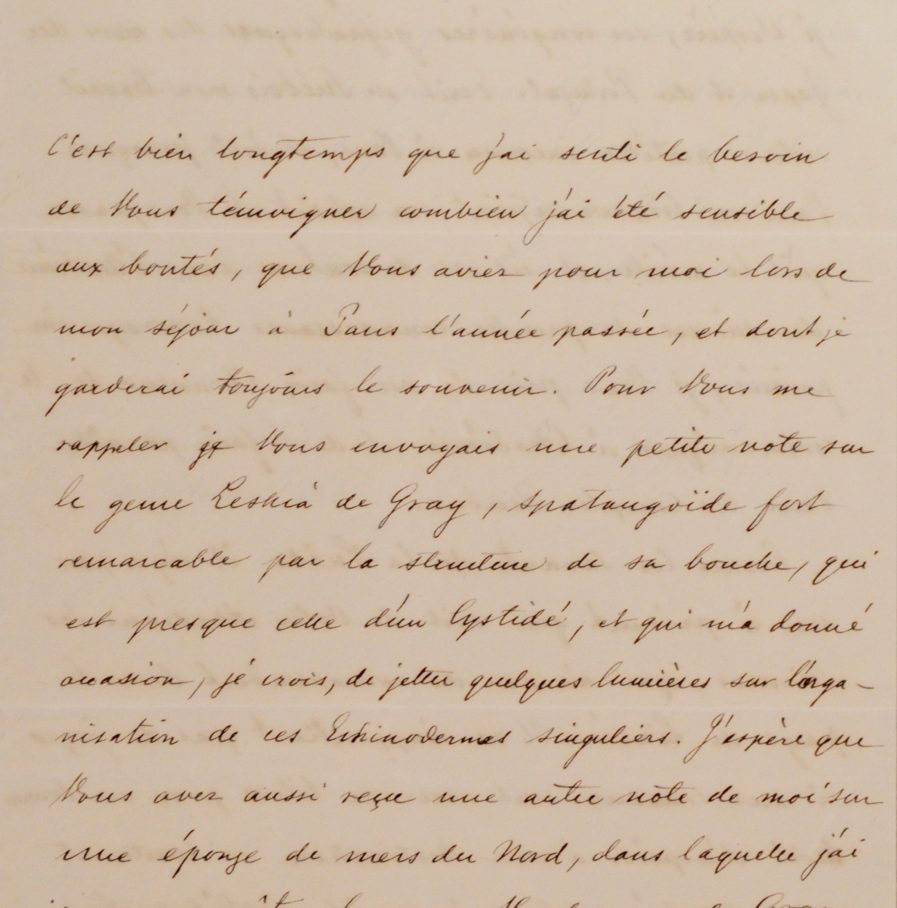 C'est bien longtemps que j'ai senti le besoin
de Vous témoigner combien j'ai été sensible
aux bontés, que Vous aviez pour moi lors de
mon séjour à Paris l'année passée, et dont je
garderai toujours le souvenir. Pour Vous me
rappeler je Vous envoyais une petite note sur
le genre Leskia de Gray, Spatangoïde fort
remarcable par la structure de sa bouche, qui
est presque celle d'un Cystidé, et qui m'a donné
occasion, je crois, de jetter quelques lumières sur l'orga-
nisation de ces Echinodermes singuliers. J'espère que
Vous avez aussi reçu une autre note de moi sur
une éponge de mers du Nord, dans laquelle j'ai